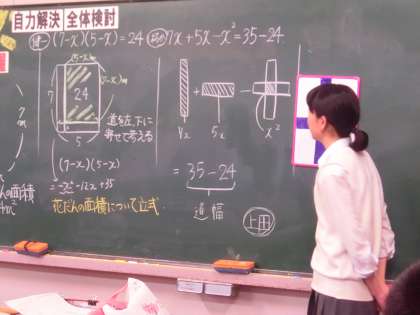 自力解決 全体検討
(7-x)(5-x)=24
7x+5x-x²=35-24
(5-x)m
7
24
5
道を左、下に
寄せて考える
7x
5x
x²
(7-x)(5-x)
=x²-12x+35
花だんの面積について立式
の面積
=35-24
道幅
上田